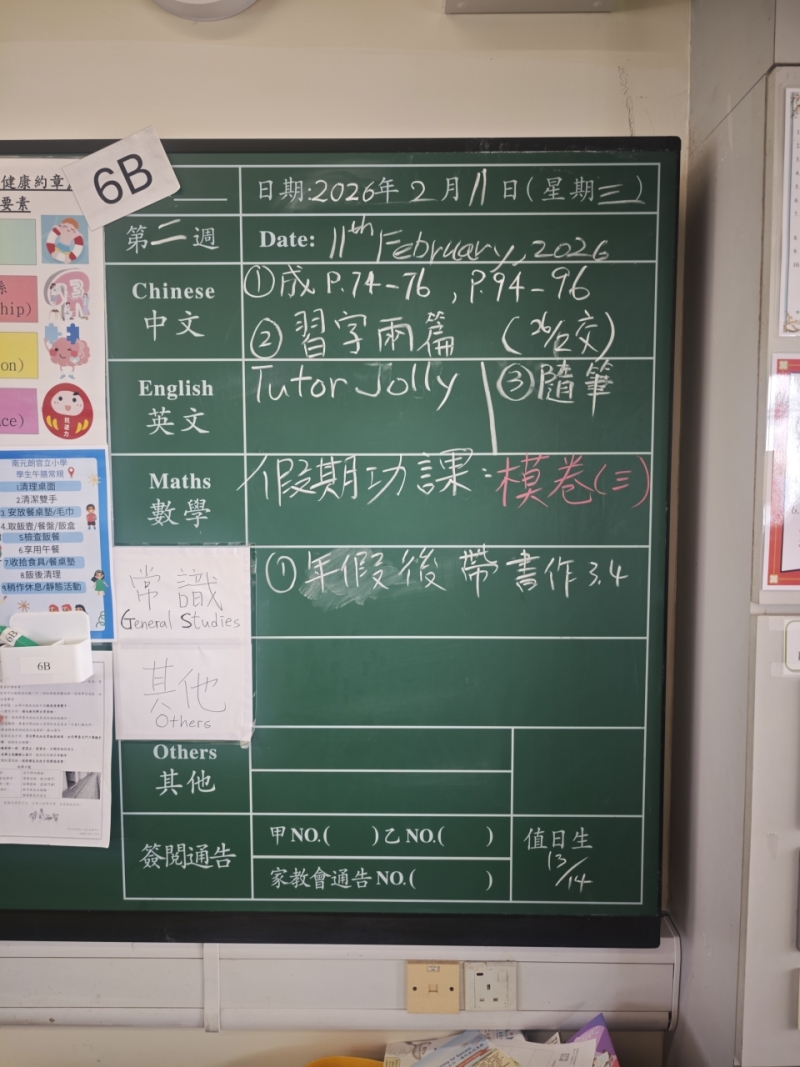 健康約章
要素
6B
日期:2026年2月11日(星期三)
第二週
Date: 11th February, 2026
Chinese
中文
①成 P.74-76 , P.94-96
②習字兩篇 (26/2交)
English
英文
Tutor Jolly
③隨筆
Maths
數學
假期功課:模卷(三)
常識
General Studies
①年假後帶書作3.4
其他
Others
Others
其他
簽閱通告
甲NO.( )乙NO.( )
家教會通告NO.( )
值日生
13/14
hip)
on)
ce)
南元朗官立小學
學生午膳常規
1清理桌面
2清潔雙手
3.安放餐桌墊/毛巾
4.取飯壹/餐盤/飯盒
5檢查飯餐
6.享用午餐
7.收拾食具/餐桌墊
8.飯後清理
9.稍作休息/靜態活動
6B
6B